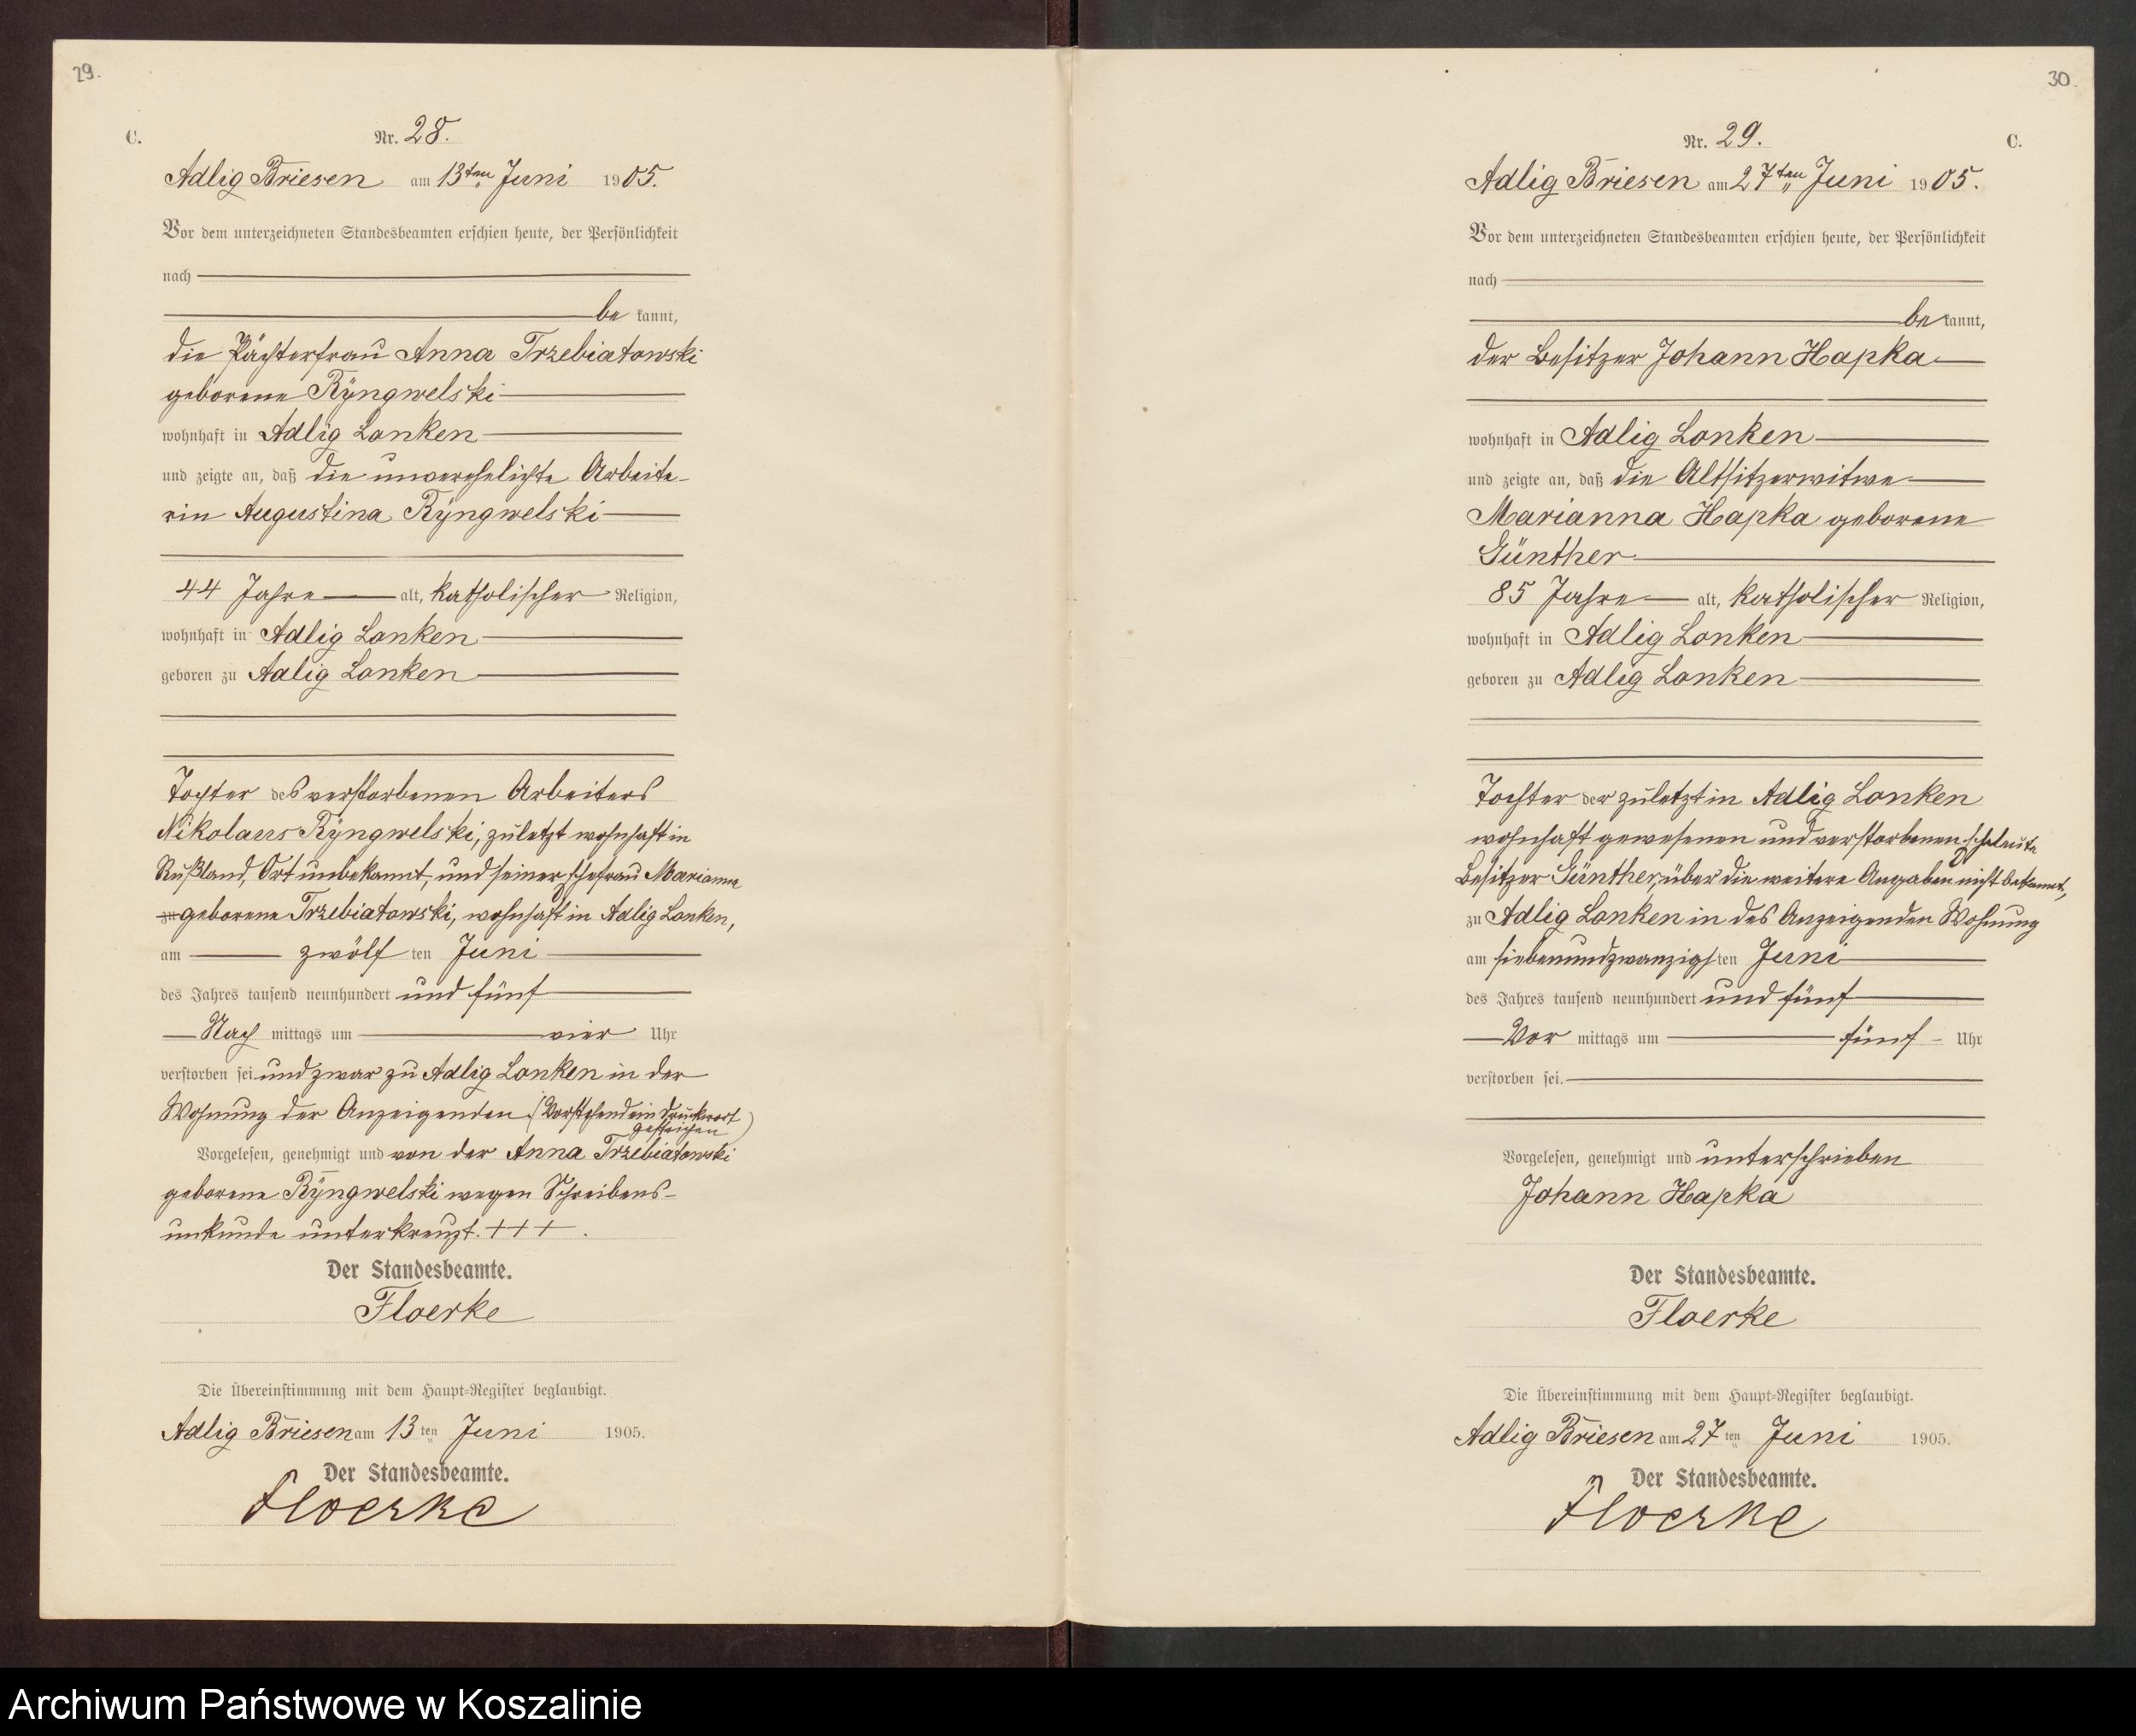 29.
C.
Nr. 28.
Adlig Briesen am 13ten Juni 1905.
Vor dem unterzeichneten Standesbeamten erschien heute, der Persönlichkeit
nach
be kannt,
die Pächterfrau Anna Trzebiatowski
geborene Ryngwelski
wohnhaft in Adlig Lonken
und zeigte an, daß die unverehelichte Arbeite-
rin Augustina Ryngwelski
44 Jahre alt, katholischer Religion,
wohnhaft in Adlig Lonken
geboren zu Adlig Lonken
Tochter des verstorbenen Arbeiters
Nikolaus Ryngwelski, zuletzt wohnhaft in
Rußland, Ort unbekannt, und seiner Ehefrau Marianna
zu geborene Trzebiatowski, wohnhaft in Adlig Lonken,
am zwölf ten Juni
des Jahres tausend neunhundert und fünf
Nach mittags um vier Uhr
verstorben sei und zwar zu Adlig Lonken in der
Wohnung der Anzeigenden (Vorstehend ein Druckwort
gestrichen)
Vorgelesen, genehmigt und von der Anna Trzebiatowski
geborene Ryngwelski wegen Schreibens-
unkunde unterkreuzt. +++.
Der Standesbeamte.
Floerke
Die Übereinstimmung mit dem Haupt-Register beglaubigt.
Adlig Briesen am 13 ten Juni 1905.
Der Standesbeamte.
Floerke
30.
Nr. 29.
C.
Adlig Briesen am 27ten Juni 1905.
Vor dem unterzeichneten Standesbeamten erschien heute, der Persönlichkeit
nach
be kannt,
der Besitzer Johann Hapka
wohnhaft in Adlig Lonken
und zeigte an, daß die Altsitzerwitwe
Marianna Hapka geborene
Günther
85 Jahre alt, katholischer Religion,
wohnhaft in Adlig Lonken
geboren zu Adlig Lonken
Tochter der zuletzt in Adlig Lonken
wohnhaft gewesenen und verstorbenen Eheleute
Besitzer Günther, über die weitere Angaben nicht bekannt,
zu Adlig Lonken in des Anzeigenden Wohnung
am siebenundzwanzigs ten Juni
des Jahres tausend neunhundert und fünf
Vor mittags um fünf Uhr
verstorben sei.
Vorgelesen, genehmigt und unterschrieben
Johann Hapka
Der Standesbeamte.
Floerke
Die Übereinstimmung mit dem Haupt-Register beglaubigt.
Adlig Briesen am 27 ten Juni 1905.
Der Standesbeamte.
Floerke
Archiwum Państwowe w Koszalinie